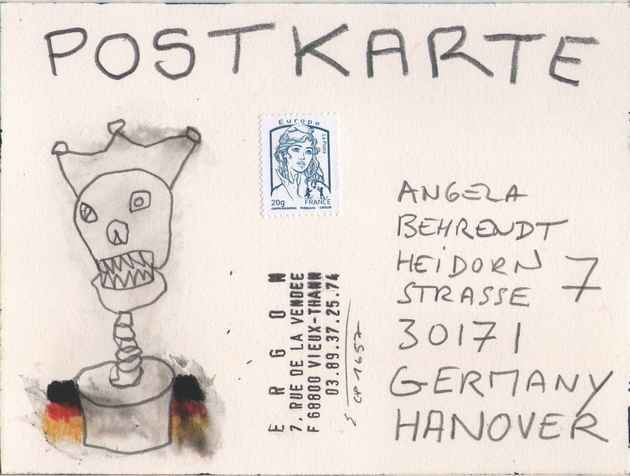 POSTKARTE
Europe
La Poste
20g
FRANCE
ERGON
7, RUE DE LA VENDEE
F 68800 VIEUX-THANN
03.89.37.25.74
ANGELA
BEHRENDT
HEIDORN
STRASSE 7
30171
GERMANY
HANOVER